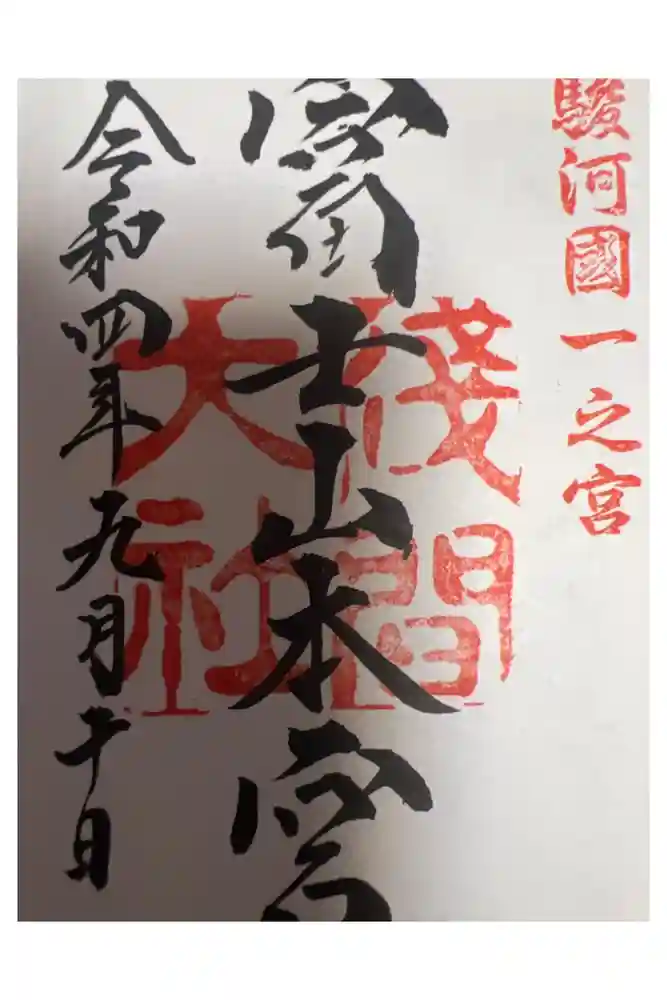 駿河國一之宮
富士山本宮
淺間大社
令和四年九月十日